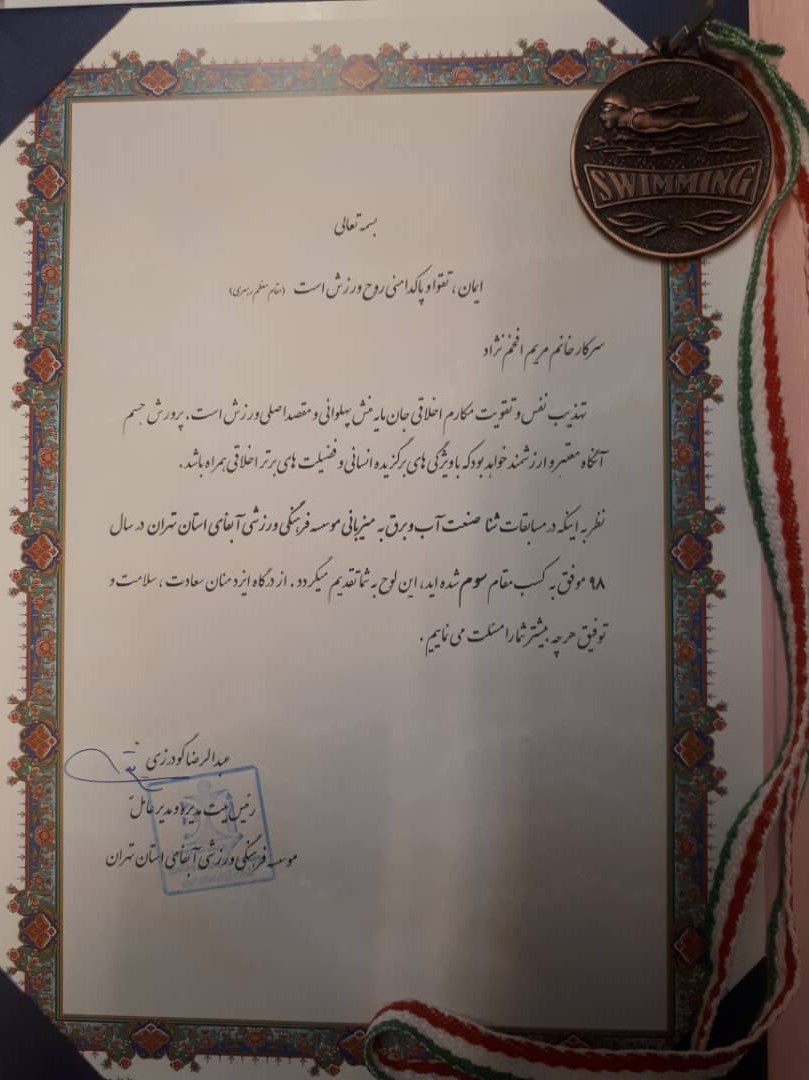 SWIMMING
بسمه تعالی
ایمان، تقوا و پاکدامنی روح ورزش است (مقام معظم رهبری)
سرکار خانم مریم افخم نژاد
تهذیب نفس و تقویت مکارم اخلاقی جان مایه منش پهلوانی و مقصد اصلی ورزش است. پرورش جسم
آنگاه معتبر و ارزشمند خواهد بود که با ویژگی های برگزیده انسانی و فضیلت های برتر اخلاقی همراه باشد.
نظر به اینکه در مسابقات شنا صنعت آب و برق به میزبانی موسسه فرهنگی ورزشی آبفای استان تهران در سال
۹۸ موفق به کسب مقام سوم شده اید، این لوح به شما تقدیم میگردد. از درگاه ایزد منان سعادت، سلامت و
توفیق هر چه بیشتر شما را مسئلت می نماییم.
عبدالرضا گودرزی
رئیس هیئت مدیره و مدیر عامل
موسسه فرهنگی ورزشی آبفای استان تهران